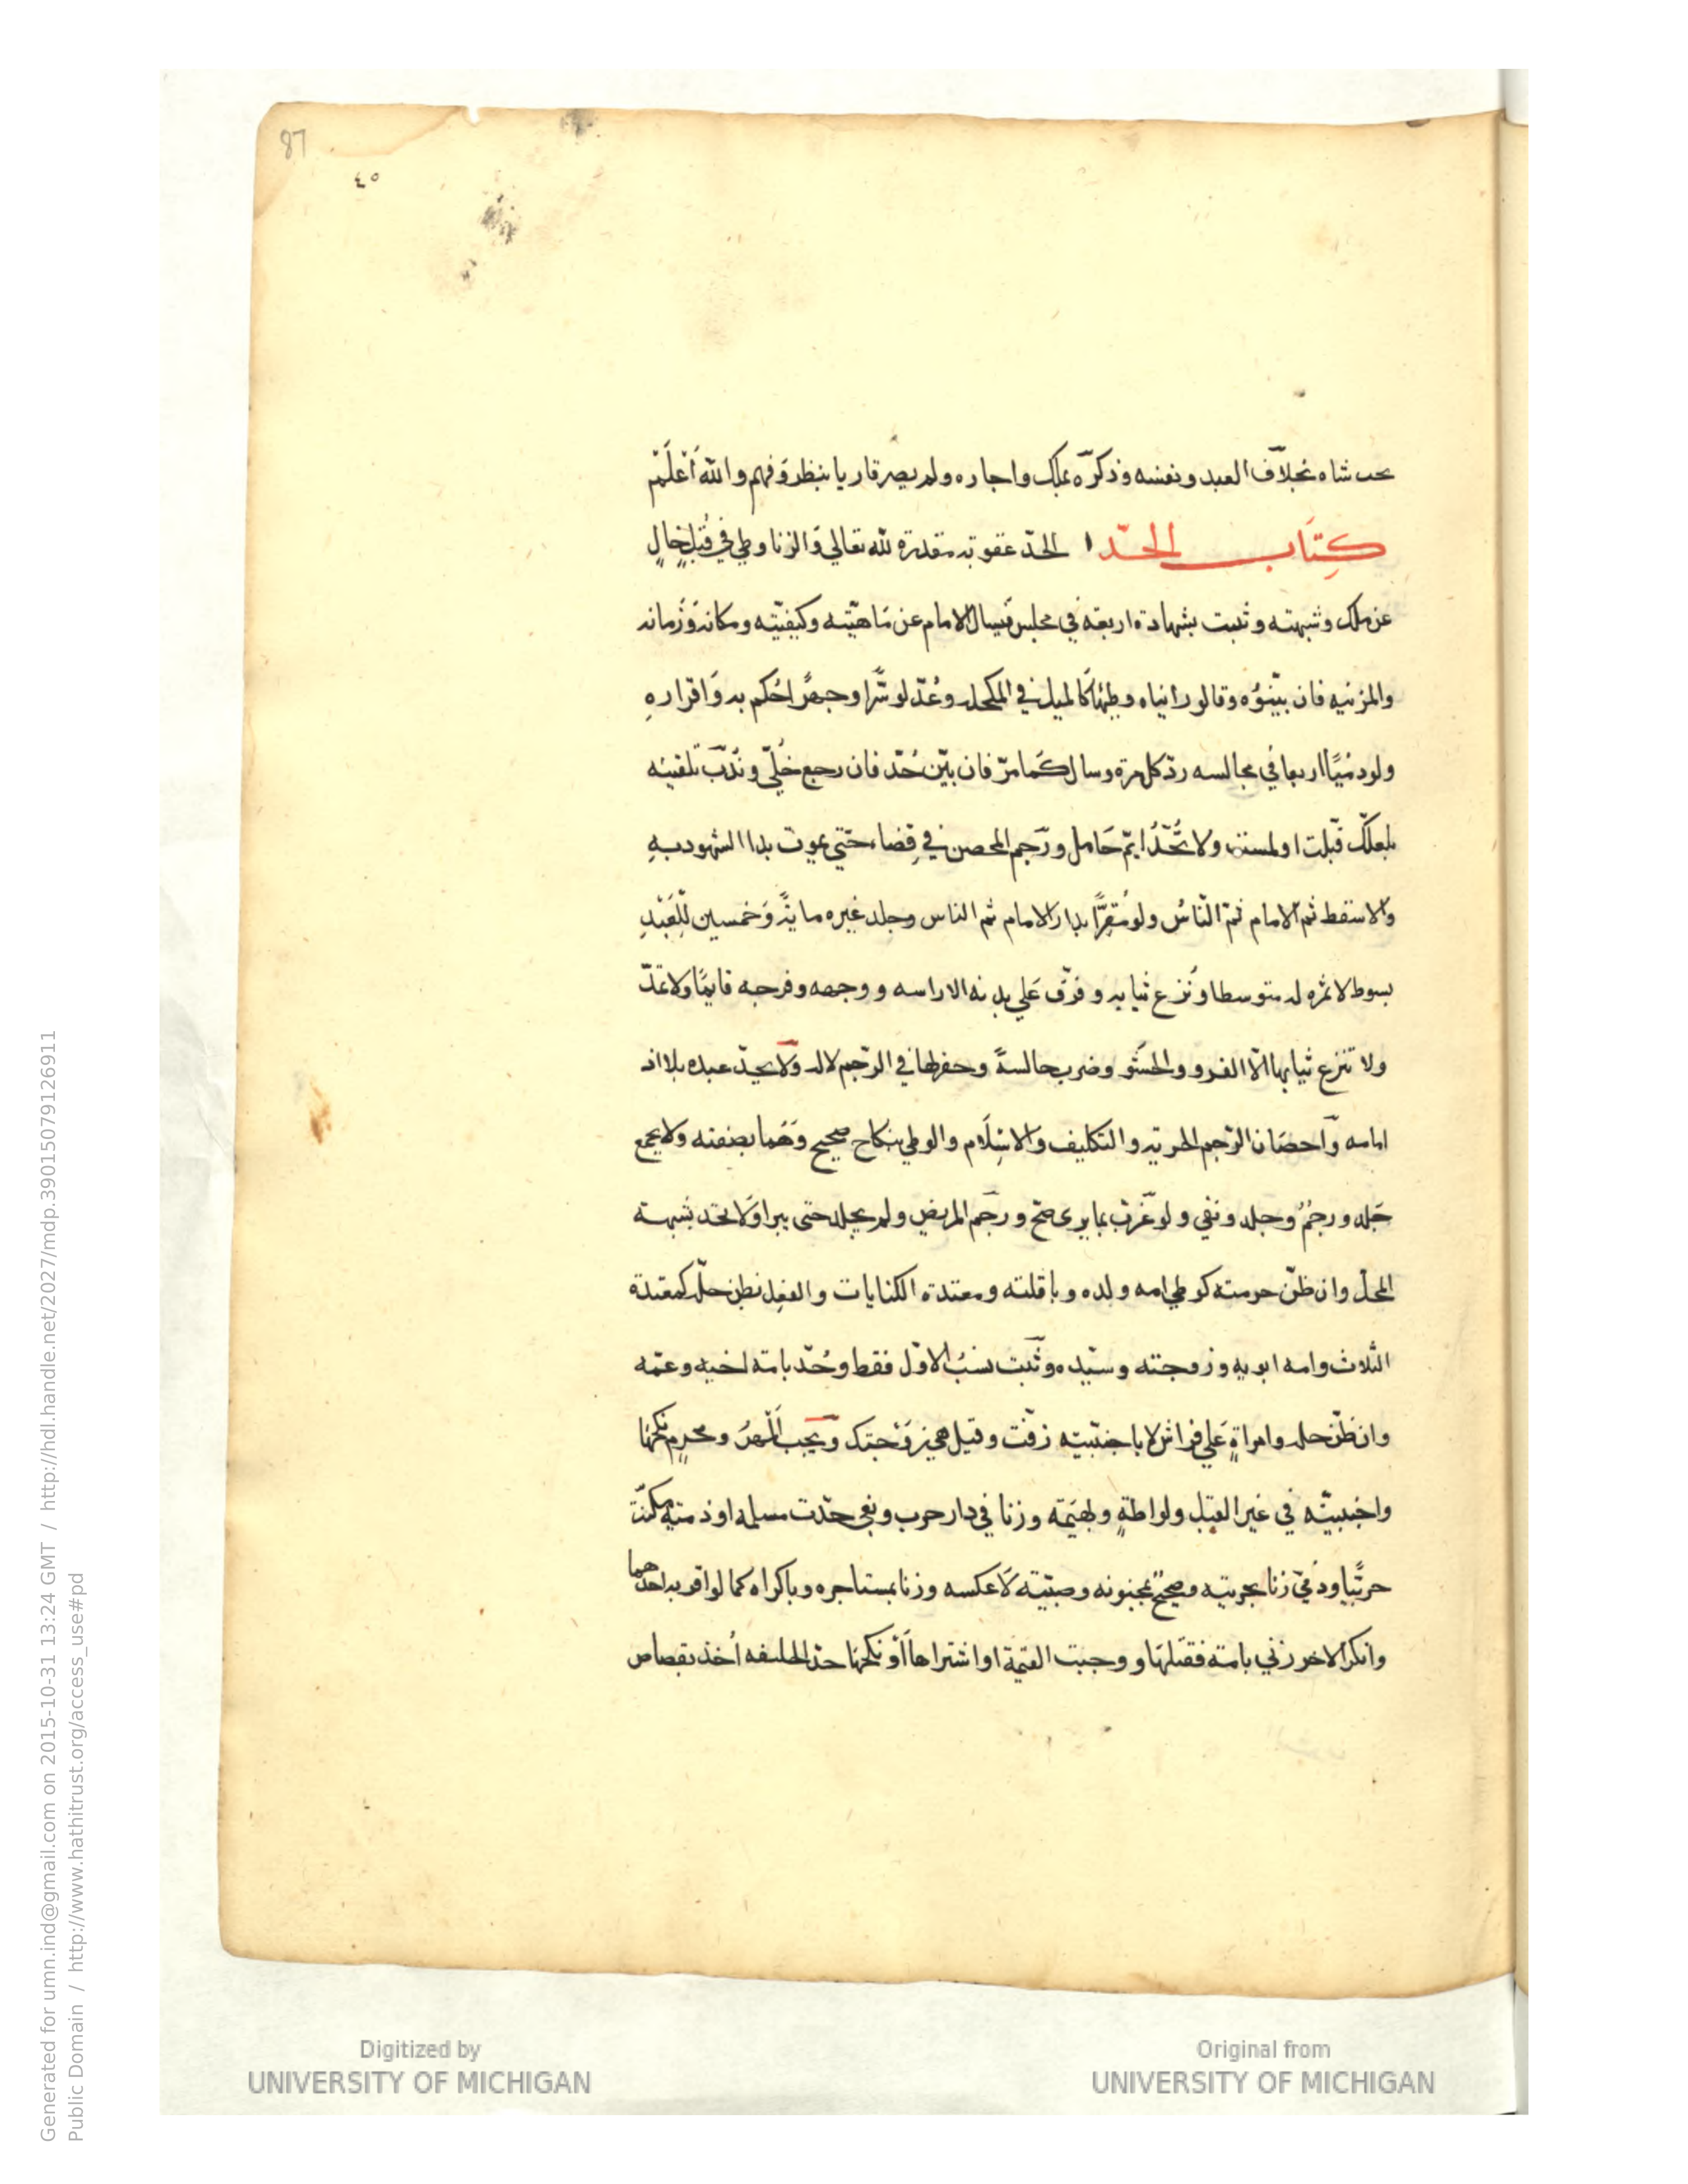 87
٤٥
بحب شاه بخلاف العبد ونفسه وذكره بملك واجاره ولم يصر قاريا بنظر وفهم والله أعلم
كتاب الحد الحد عقوبة مقدرة لله تعالي والزنا وطي في قبل خال
عن ملك وشبهته وثبت بشهادة اربعة في مجلس فيسال الامام عن ماهيته وكيفيته ومكانه وزمانه
والمزنيه فان بينوه وقالو رانياه وطئها كالميل في المكحله وعدلو سرا وجهرا حكم به واقراره
ولو ذميا اربعا في مجالسه رد كل مرة وسال كما مر فان بين حد فان رجع خلي وندب تلقينه
بلعلك قبلت او لمست ولا تحد ايم حامل ورجم المحصن في فضاء حتي يموت بدا الشهود به
والا سقط ثم الامام ثم الناس ولو مقرا بدا الامام ثم الناس وجلد غيره ماية وخمسين للعبد
بسوط لا ثمره له متوسطا ونزع ثيابه وفرق علي بدنه الا راسه ووجهه وفرجه قايما ولا تمد
ولا تنزع ثيابها الا الفرو والحشو وضرب جالسة وحفر لها في الرجم لا له ولا يحد عبده بلا اذ
امامه واحصان الرجم الحرية والتكليف والاسلام والوطي بنكاح صحيح وهما بصفته ولا يجمع
جلد ورجم وجلد ونفي ولو غرب بما يري صح ورجم المريض ولم يجلد حتى يبرا ولا يحد بشبهة
المحل وان ظن حرمته كوطي امه ولده وباقلته ومعتدة الكنايات والفعل بظن حله كمعتدة
الثلاث وامه ابويه وزوجته وسيده وثبت نسب الاول فقط وحد بامة اخيه وعمه
وان ظن حله وامراة علي فراش لا باجنبيته زفت وقيل هي زوجتك ويجب المهر ومحرم نكحها
واجنبيته في غير القبل ولواطة وبهيمة وزنا في دار حرب وبغي حدت مسلمه او ذمية مكنت
حربيا وذمي زنا بحربيه وصحيح بمجنونه وصبيته لا عكسه وزنا بمستاجره وباكراه كما لو اقر به احدهما
وانكر الاخر زني بامة فقتلها ووجبت القيمة او اشتراها أو نكحها حد الخليفه أخذ بقصاص
Generated for umn.ind@gmail.com on 2015-10-31 13:24 GMT / http://hdl.handle.net/2027/mdp.39015079126911
Public Domain / http://www.hathitrust.org/access_use#pd
Digitized by
UNIVERSITY OF MICHIGAN
Original from
UNIVERSITY OF MICHIGAN